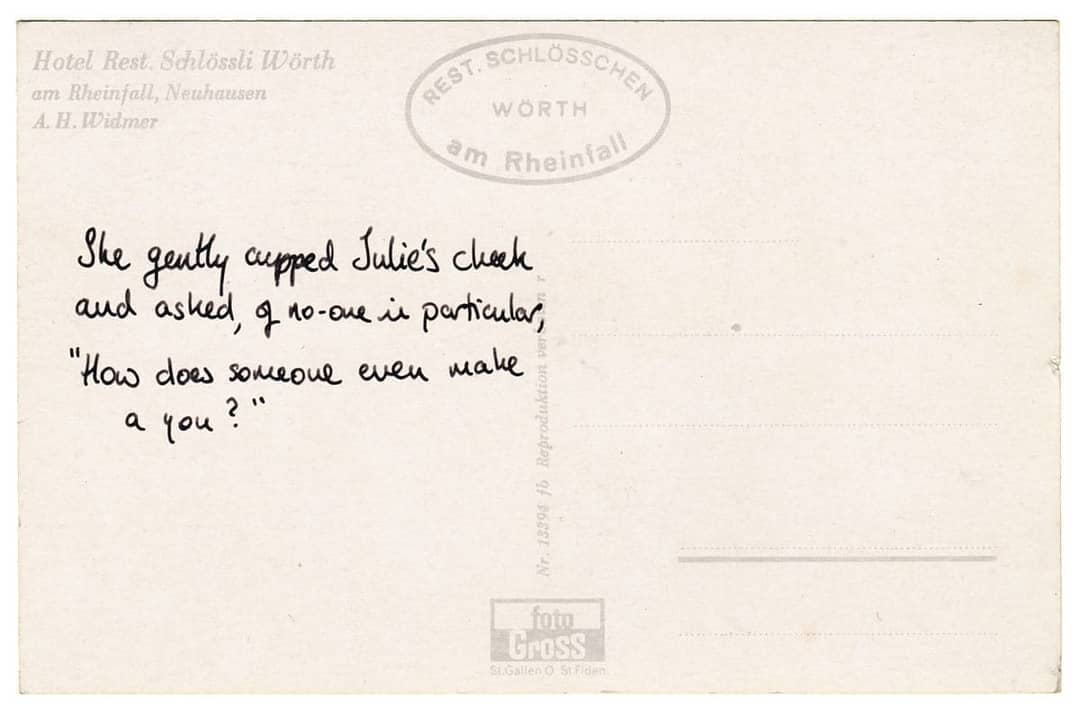 Hotel Rest. Schlössli Wörth
am Rheinfall, Neuhausen
A. H. Widmer
REST. SCHLÖSSCHEN
WÖRTH
am Rheinfall
She gently cupped Julie's cheek
and asked, of no-one in particular,
"How does someone even make
a you?"
Nr. 13394 fb Reproduktion
foto
Gross
St.Gallen O St.Fiden